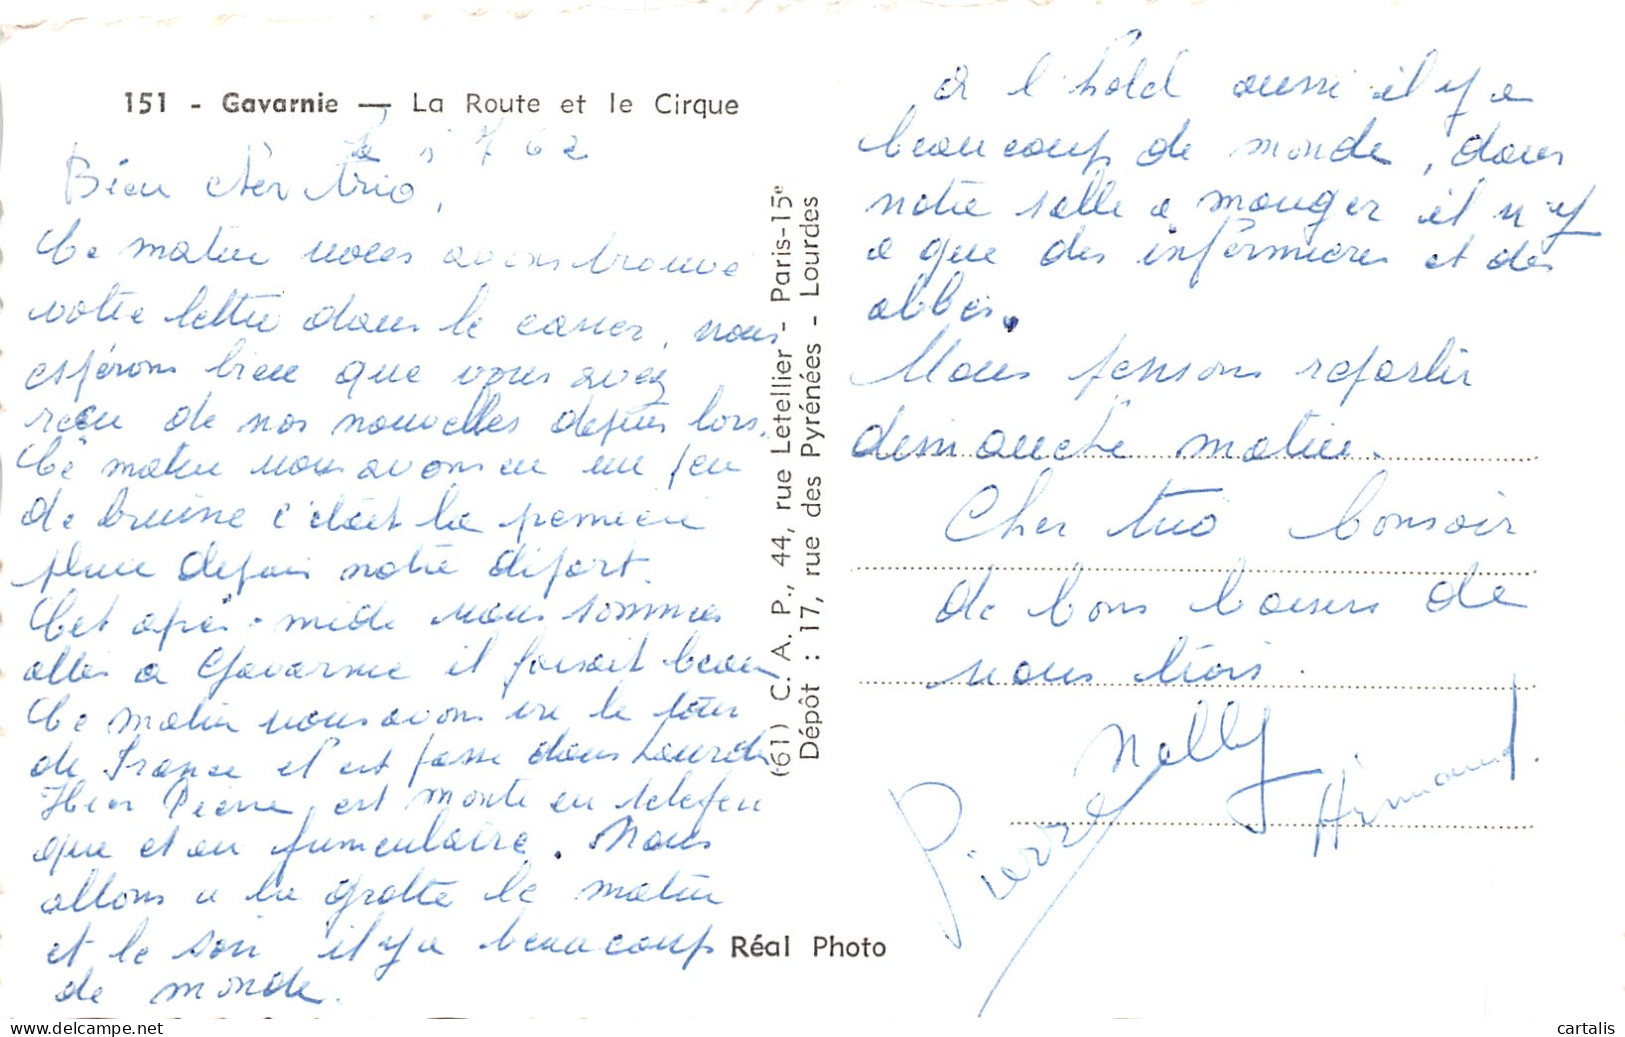 151 - Gavarnie — La Route et le Cirque
62
Bien cher trio,
Ce matin nous avons trouvé
votre lettre dans le casier, nous
espérons bien que vous avez
reçu de nos nouvelles depuis lors.
Ce matin nous avons eu un peu
de bruine c'était la premiere
pluie depuis notre départ.
Cet après-midi nous sommes
allés a Gavarnie il faisait beau
Ce matin nous avons vu le tour
de France il est passé dans Lourde
Hier Pierre est monté en telefer
que et en funiculaire. Nous
allons a la grotte le matin
et le soir il y a beaucoup
de monde.
a l'hotel aussi il y a
beaucoup de monde, dans
notre salle a manger il n'y
a que des infirmieres et des
abbés.
Nous pensons repartir
dimanche matin.
Cher trio bonsoir
de bons baisers de
nous trois.
Nelly
Pierre
Armand.
(61) C. A. P., 44, rue Letellier - Paris-15e
Dépôt : 17, rue des Pyrénées - Lourdes
Réal Photo
www.delcampe.net
cartalis